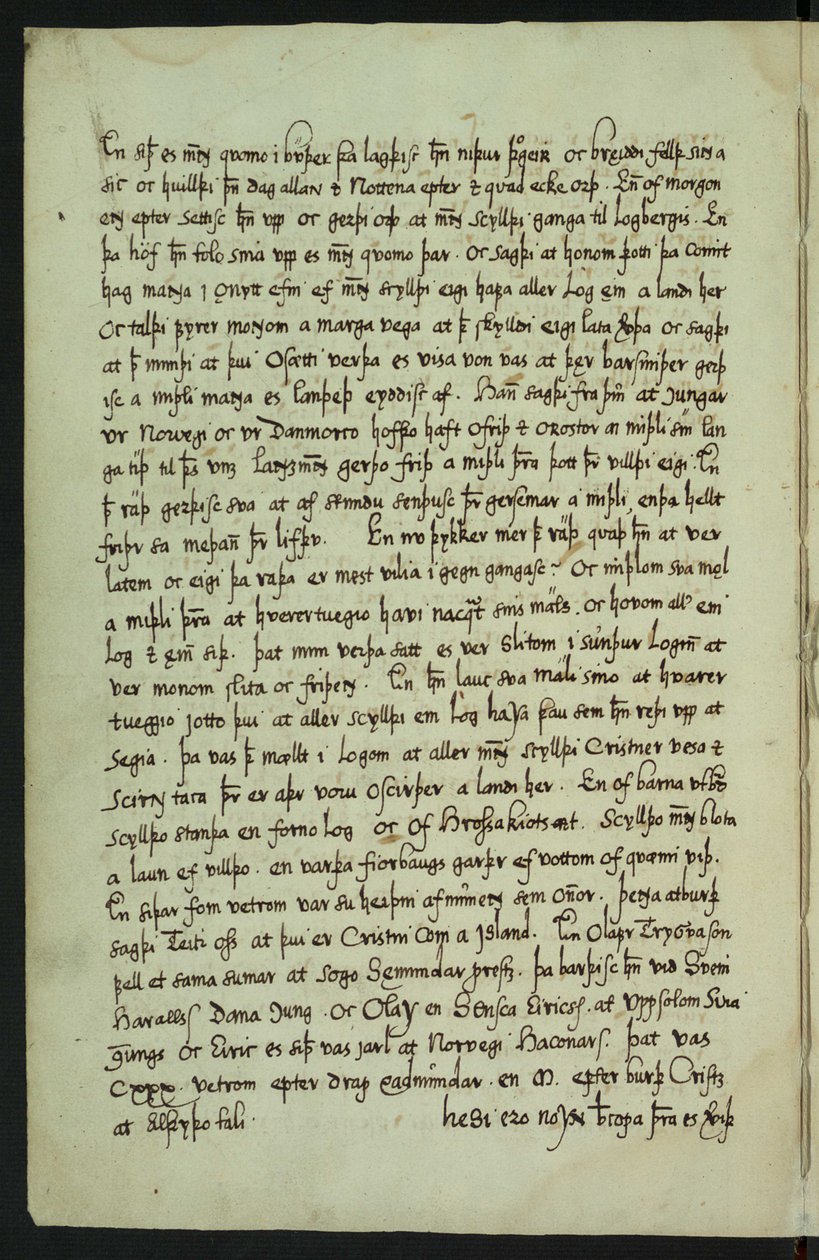 En siþ es m̅n quomo i bv́þer þa lagþisc hn̅ niþur þᵒgeir oc breiddi felld sinn a
sic oc huillþi þn̅ dag allan ⁊ Nottena epter ⁊ quaþ ecke orþ. En̅ of morgon
enn epter settisc hn̅ vpp oc gerþi orþ at m̅n scylldi ganga til logbergis. En
þa hóf hn̅ tolo sina vpp es m̅n quomo þar. oc sagþi at honom þotti þa comit
hag manna i onytt efni ef m̅n scylldi eigi hafa aller lòg ęin a landi her
oc talþi fyrer monnom a marga vega at þ̅ skylldi eigi lata verþa oc sagþi
at þ̅ mundi at þui osætti verþa es visa von vas at þęr barsmiþer gerþ
isc a miþli manna es lanþeþ eyddisc af. Han̅ sagþi fra þui at Jungar
vr Norvegi oc vr Danmorco hofþo haft ofriþ ⁊ orostor a miþli sin̅ lan
ga tiþ til þs̅ vnz lanzm̅n gerþo friþ a miþli þr̅a þott þr̅ villdi eigi. En
þ̅ ráþ gerþisc sva at af stundu sendusc þr̅ gersemar a miþli, enþa hellt
friþr sa meþan̅ þr̅ lifþv. En nv þykker mer þ̅ ráþ quaþ hn̅ at ver
latem oc eigi þa raþa er mest vilia i gegn gangasc. Oc miþlom sva mǫl
a miþli þr̅a at hverertuegio havi nacqt̅ sins máls. oc hovom all' ein
log ⁊ ęin̅ siþ. þat mun verþa satt es ver slitom i sunþur login̅ at
ver monom slita oc friþenn. En hn̅ lauc sva máli sino at hvarer
tueggio játto þui at aller scylldi ein lòg hafa þau sem hn̅ reþi vpp at
segia. þa vas þ̅ mællt i logom at aller m̅n scylldi Cristner vesa ⁊
scirn taca þr̅ er aþr voru oscirþer a landi her. En of barna vtburþ
scylldo standa en forno log oc of Hrossakiotsát. Scylldo m̅n blota
a laun ef villdo. en varþa fiorbaugs garþr ef vottom of quæmi viþ.
En siþar fom vetrom var su heiþni afnumenn sem onnor. þenna atburþ
sagþi Teitr oss at þui er Cristni com a Jsland. En Olafr Tryggvason
fell et sama sumar at sogo Sęmundar prestz. þa barþisc hn̅ vid Svein
Haralls Dana Jung. oc Olaf en Sensca Eirics s. at Vppsolom Svia
gungs oc Eiric es siþ vas jarl at Norvegi Haconars. þat vas
Cxxx. vetrom epter drap eadmundar. en M. epter burþ Cristz
at Alþyþo tali. Þesi ero nofn b̅copa þr̅a es veriþ